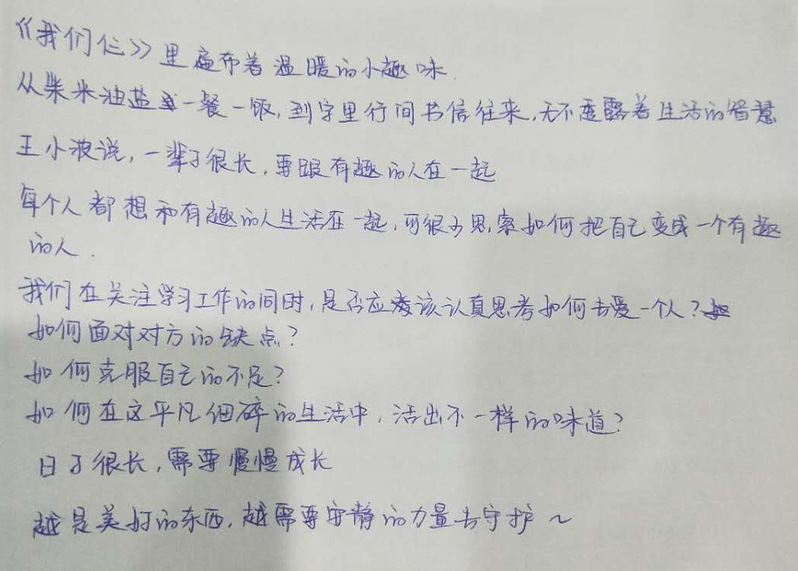 《我们仨》里遍布着温暖的小趣味.
从柴米油盐一餐一饭,到字里行间书信往来,无不透露着生活的智慧
王小波说,一辈子很长,要跟有趣的人在一起
每个人都想和有趣的人生活在一起,可很少思索如何把自己变成一个有趣
的人.
我们在关注学习工作的同时,是否应该认真思考如何去爱一个人?
如何面对对方的缺点?
如何克服自己的不足?
如何在这平凡细碎的生活中,活出不一样的味道?
日子很长,需要慢慢成长
越是美好的东西,越需要安静的力量去守护~